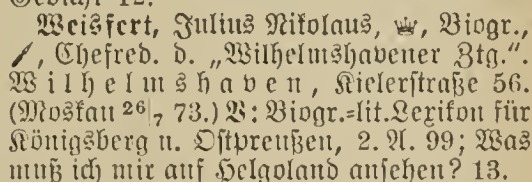 Weisfert, Julius Nikolaus, Biogr.,
Chefred. d. „Wilhelmshavener Ztg.“.
Wilhelmshaven, Kielerstraße 56.
(Moskau 26/7 73.) V: Biogr.=lit. Lexikon für
Königsberg u. Ostpreußen, 2. A. 99; Was
muß ich mir auf Helgoland ansehen? 13.